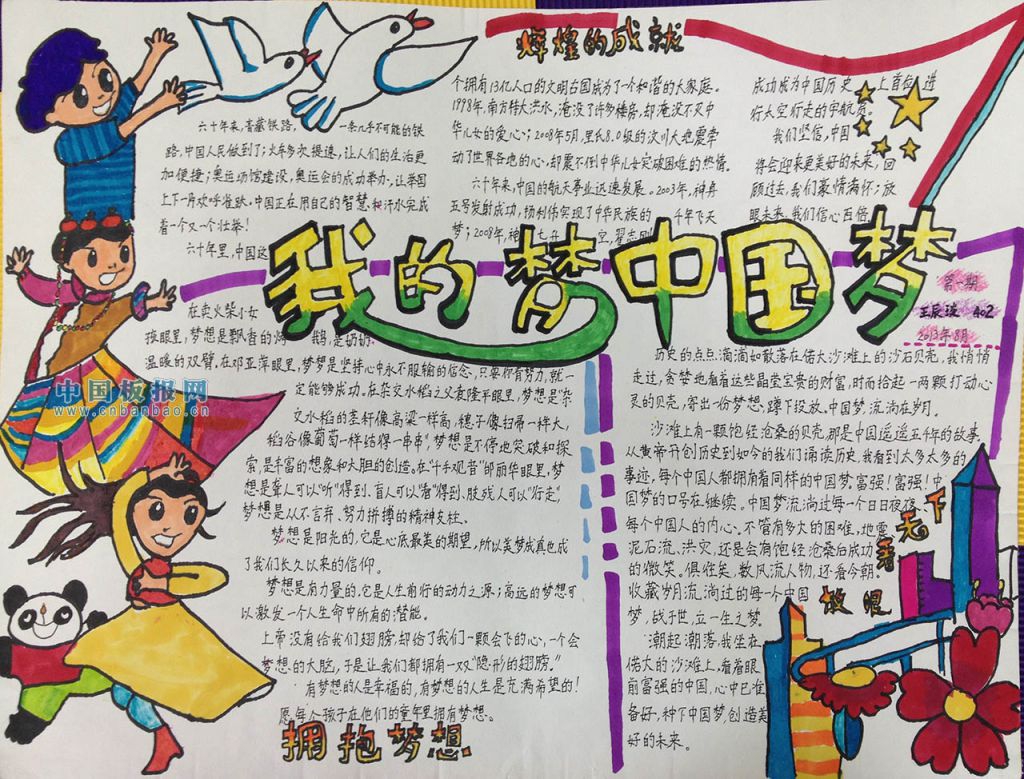 辉煌的成就
六十年来,青藏铁路, 一条几乎不可能的铁
路,中国人民做到了;火车多次提速,让人们的生活更
加便捷;奥运场馆建设,奥运会的成功举办,让举国
上下一片欢呼雀跃。中国正在用自己的智慧和汗水完成
着一个又一个壮举!
六十年里,中国这
个拥有13亿人口的文明古国成为了一个和谐的大家庭。
1998年,南方特大洪水,淹没了许多楼房,却淹没不灭中
华儿女的爱心;2008年5月,里氏8.0级的汶川大地震牵
动了世界各地的心,却震不倒中华儿女突破困难的热情。
六十年来,中国的航天事业迅速发展。2003年,神舟
五号发射成功,杨利伟实现了中华民族的 千年飞天
梦;2008年,神 七升 空,翟志刚
成功成为中国历史 上首位进
行太空行走的宇航员。
我们坚信,中国
将会迎来更美好的未来,回
顾过去,我们豪情满怀;放
眼未来,我们信心百倍
我的梦中国梦
第一期
王辰 402
2013年8月
在卖火柴小女
孩眼里,梦想是飘香的烤 鹅,是奶奶
温暖的双臂。在邓亚萍眼里,梦想是坚持心中永不服输的信念,只要你有努力,就一
定能够成功。在杂交水稻之父袁隆平眼里,梦想是"杂
交水稻的茎秆像高粱一样高,穗子像扫帚一样大,
稻谷像葡萄一样结得一串串",梦想是不停地突破和探
索,是丰富的想象和大胆的创造。在"千手观音"邰丽华眼里,梦
想是聋人可以"听"得到、盲人可以"看"得到、肢残人可以"行走",
梦想是从不言弃、努力拼搏的精神支柱。
梦想是阳光的,它是心底最美的期望,所以美梦成真也成
了我们长久以来的信仰。
梦想是有力量的,它是人生前行的动力之源;高远的梦想可
以激发一个人生命中所有的潜能。
上帝没有给我们翅膀,却给了我们一颗会飞的心,一个会
梦想的大脑,于是让我们都拥有一双"隐形的翅膀。"
有梦想的人是幸福的,有梦想的人生是充满希望的!
愿每个孩子在他们的童年里拥有梦想。
拥抱梦想
历史的点点滴滴如散落在偌大沙滩上的沙石贝壳,我悄悄
走过,贪婪地看着这些晶莹宝贵的财富,时而拾起一两颗打动心
灵的贝壳,寄出一份梦想,蹲下投放。中国梦,流淌在岁月。
沙滩上有一颗饱经沧桑的贝壳,那是中国遥遥五千年的故事,
从黄帝开创历史到如今的我们诵读历史,我看到太多太多的
事迹,每个中国人都拥有着同样的中国梦,富强!富强!中
国梦的口号在继续。中国梦流淌过每一个日日夜夜、
每个中国人的内心。不管有多大的困难,地震、
泥石流、洪灾,还是会有饱经沧桑后成功
的微笑。俱往矣,数风流人物,还看今朝。
收藏岁月,流淌过的每一个中国
梦,战于世,立一生之梦。
潮起潮落,我坐在
偌大的沙滩上,看着眼
前富强的中国,心中已准
备好,种下中国梦,创造美
好的未来。
放眼看天下
中国板报网
www.cnbanbao.cn